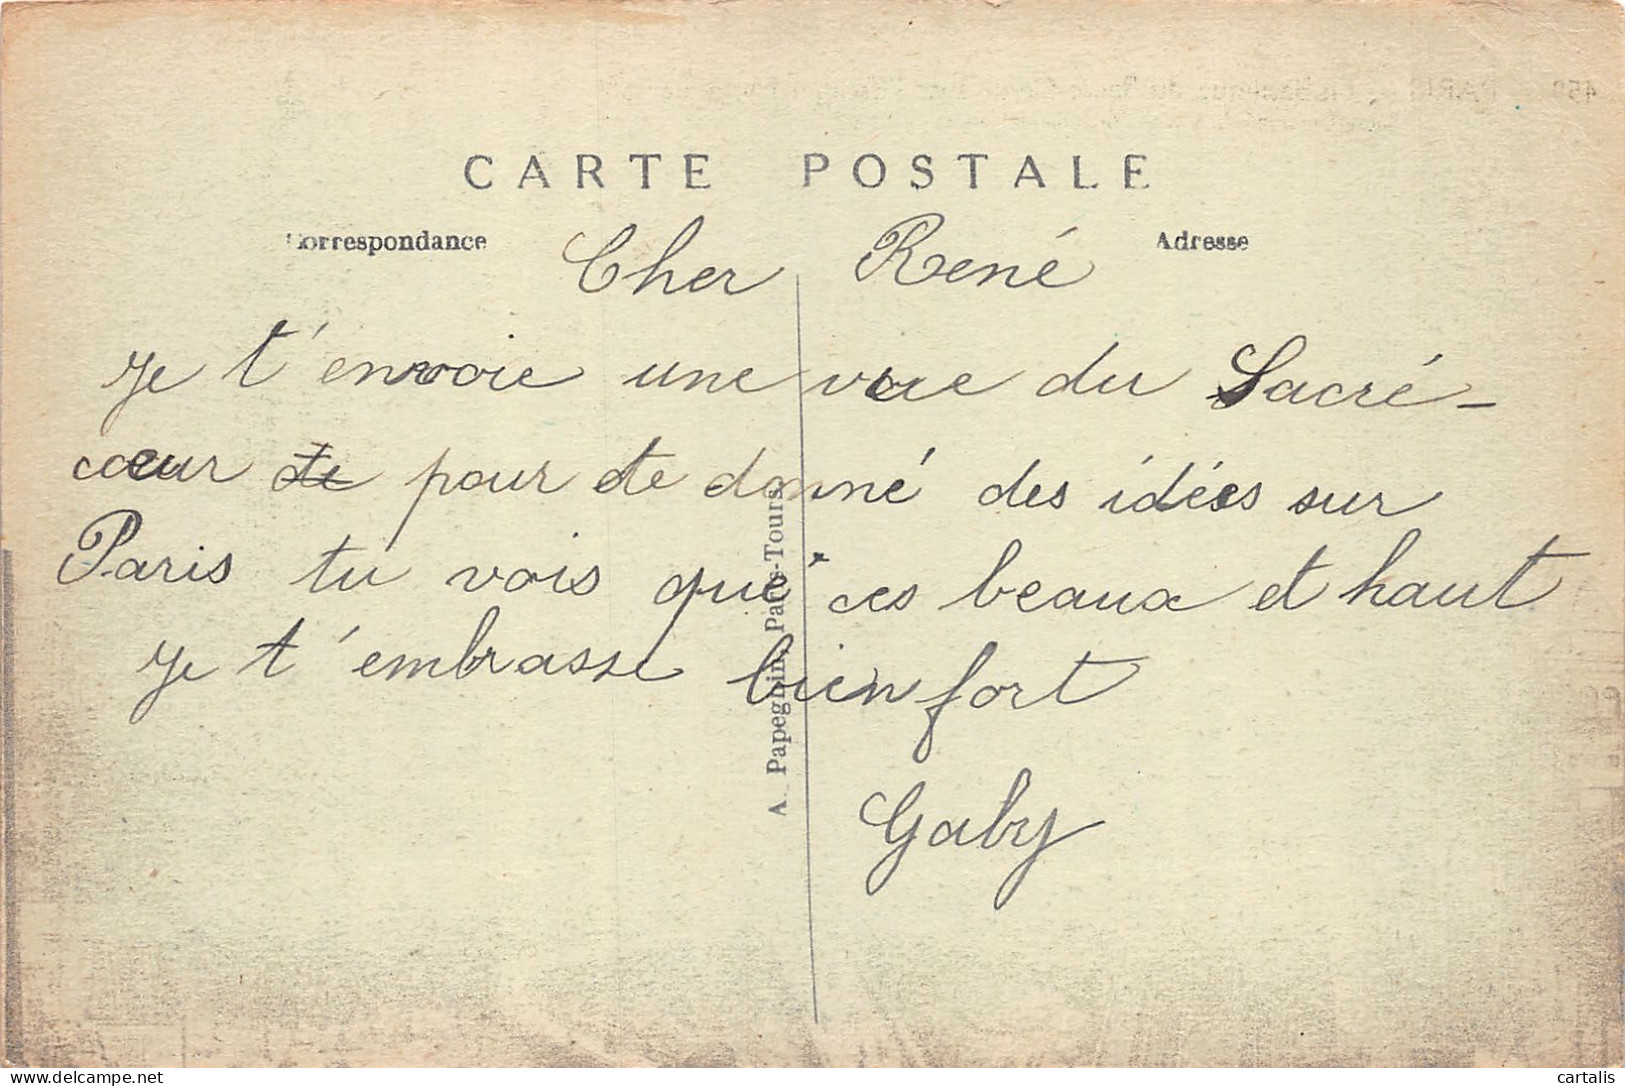 CARTE POSTALE
Correspondance
Adresse
Cher René
Je t'envoie une vue du Sacré-
coeur te pour te donné des idées sur
Paris tu vois que ces beaux et haut
Je t'embrasse bien fort
Gaby
A. Papeghin, Paris-Tours.
delcampe.net
cartalis